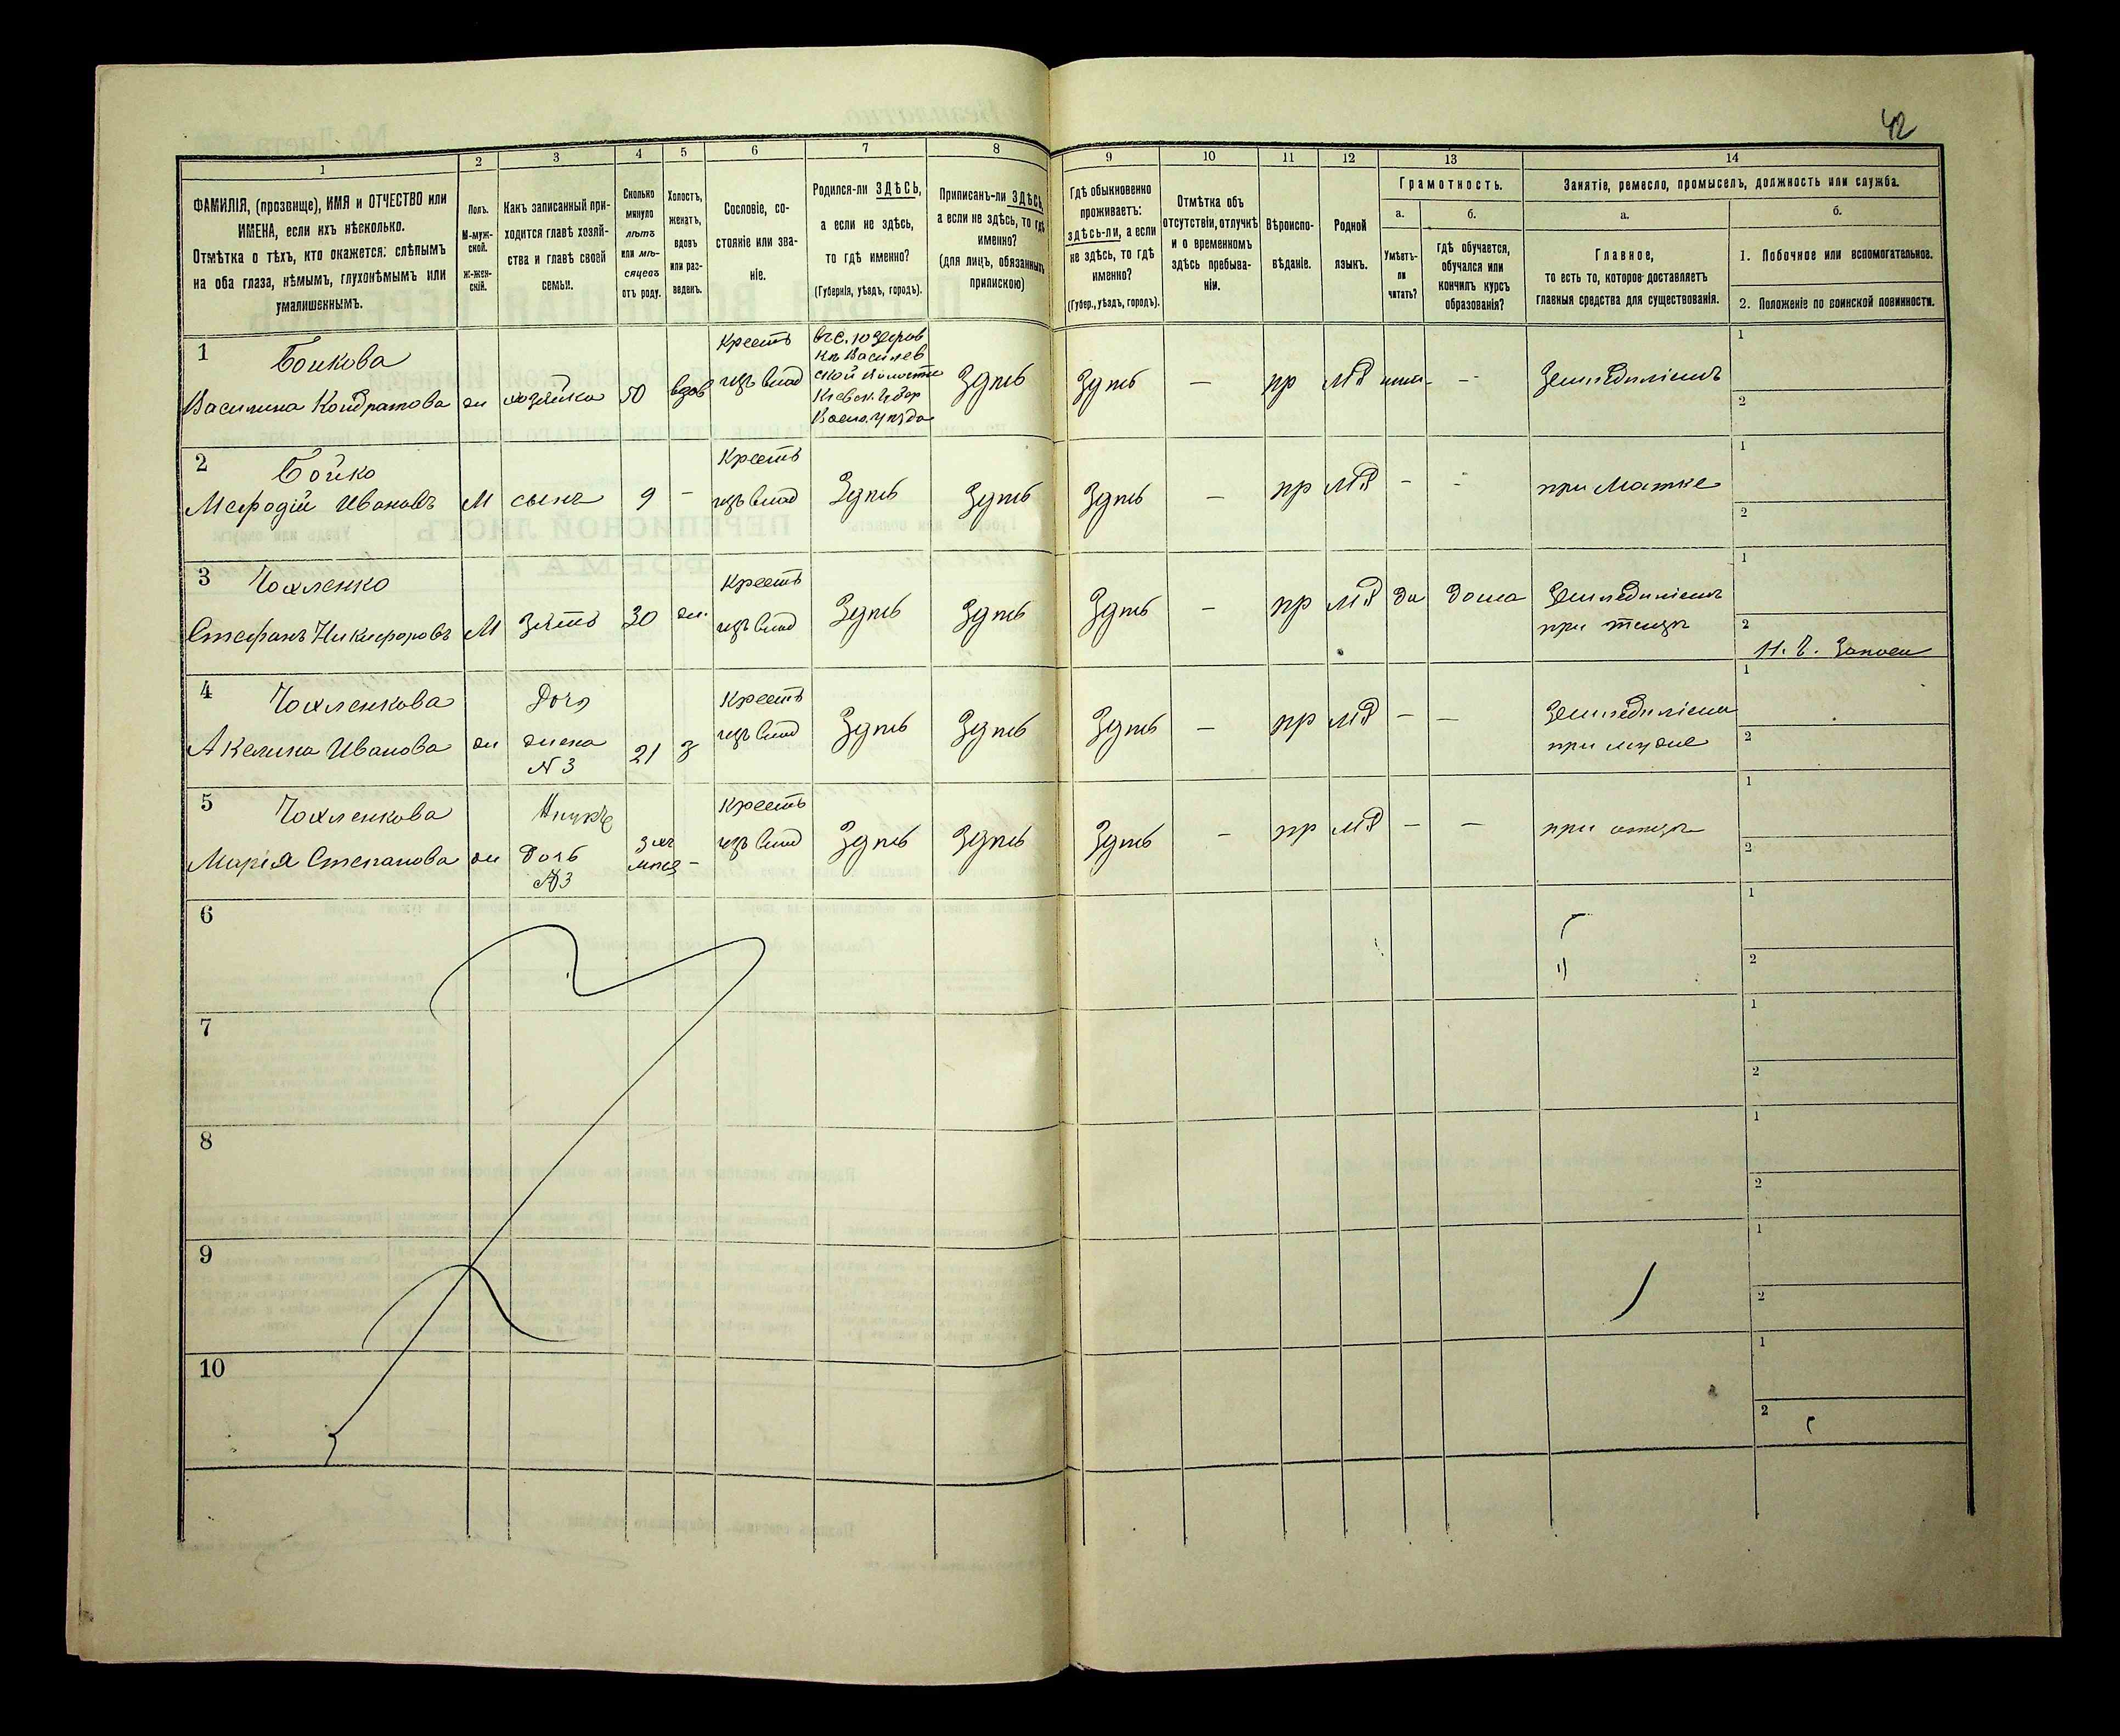 42
1 2 3 4 5 6 7 8 9 10 11 12 13 14
ФАМИЛІЯ, (прозвище), ИМЯ и ОТЧЕСТВО или
ИМЕНА, если ихъ нѣсколько.
Отмѣтка о тѣхъ, кто окажется: слѣпымъ
на оба глаза, нѣмымъ, глухонѣмымъ или
умалишеннымъ.
Полъ.
М-муж-
ской.
Ж-жен-
скій.
Какъ записанный при-
ходится главѣ хозяй-
ства и главѣ своей
семьи.
Сколько
минуло
лѣтъ
или мѣ-
сяцевъ
отъ роду.
Холостъ,
женатъ,
вдовъ
или раз-
веденъ.
Сословіе, со-
стояніе или зва-
ніе.
Родился-ли ЗДѢСЬ,
а если не здѣсь,
то гдѣ именно?
(Губернія, уѣздъ, городъ).
Приписанъ-ли ЗДѢСЬ,
а если не здѣсь, то гдѣ
именно?
(для лицъ, обязанныхъ
припискою)
Гдѣ обыкновенно
проживаетъ:
здѣсь-ли, а если
не здѣсь, то гдѣ
именно?
(Губер., уѣздъ, городъ).
Отмѣтка объ
отсутствіи, отлучкѣ
и о временномъ
здѣсь пребыва-
ніи.
Вѣроиспо-
вѣданіе.
Родной
языкъ.
Грамотность.
а.
Умѣетъ-
ли
читать?
б.
гдѣ обучается,
обучался или
кончилъ курсъ
образованія?
Занятіе, ремесло, промыселъ, должность или служба.
а.
Главное,
то есть то, которое доставляетъ
главныя средства для существованія.
б.
1. Побочное или вспомогательное.
2. Положеніе по воинской повинности.
1 Бойкова Крестъ
Василина Кондратова ж хозяйка 50 вдов изъ влад Здѣсь Здѣсь — пр МР — Земледѣліемъ 1 2
2 Бойко Крестъ
Мефодій Ивановъ М сынъ 9 — изъ влад Здѣсь Здѣсь Здѣсь — пр МР — — при Матке 1 2
3 Чохленко Крестъ
Стефанъ Никифоровъ М зять 30 ж. изъ влад Здѣсь Здѣсь Здѣсь — пр МР да дома Земледѣліемъ
при 1 2
4 Чохленкова Доч Крестъ
Акелина Иванова ж жена 21 з изъ влад Здѣсь Здѣсь Здѣсь — пр МР — —
N 3 при муже 1 2
5 Чохленкова Крестъ
Марія Степанова ж Дочь 3 — изъ влад Здѣсь Здѣсь Здѣсь — пр МР — — при отцѣ 1 2
N3
6 1 2
7 1 2
8 1 2
9 1 2
10 1 2